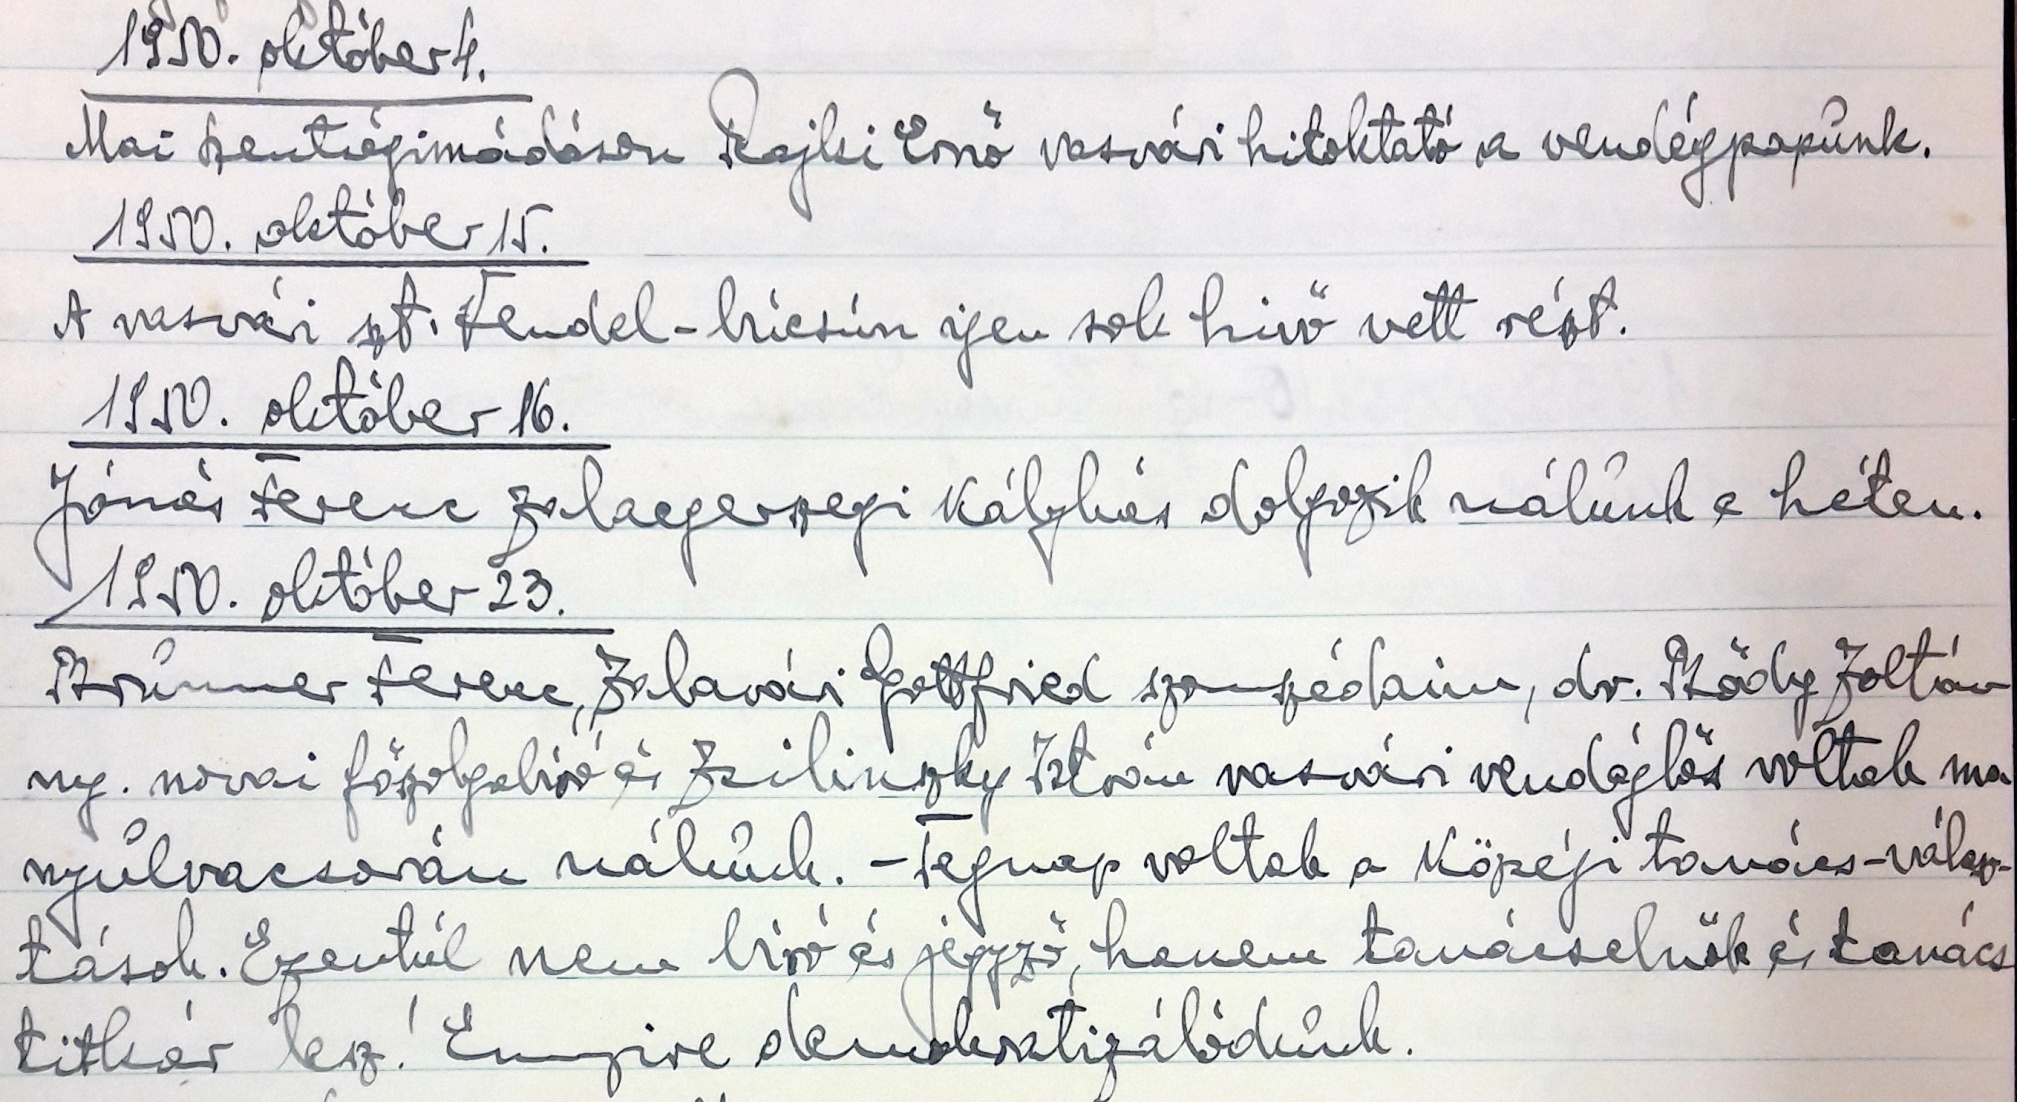 1950. október 4.
Mai szentségimádáson Rajki Ernő vasvári hitoktató a vendégpapunk.
1950. október 15.
A vasvári szt. Vendel-búcsún igen sok hivő vett részt.
1950. október 16.
Jónás Ferenc zalaegerszegi kályhás dolgozik nálunk e héten.
1950. október 23.
Brunner Ferenc, Zalavári Gottfried szomszédaim, dr. Bődy Zoltán
ny. novai főszolgabiró és Zsilinszky István vasvári vendéglős voltak ma
nyúlvacsorán nálunk. - Tegnap voltak a községi tanács-válasz-
tások. Ezentúl nem biró és jegyző, hanem tanácselnök és tanács
titkár lesz! Ennyire demokratizálódunk.